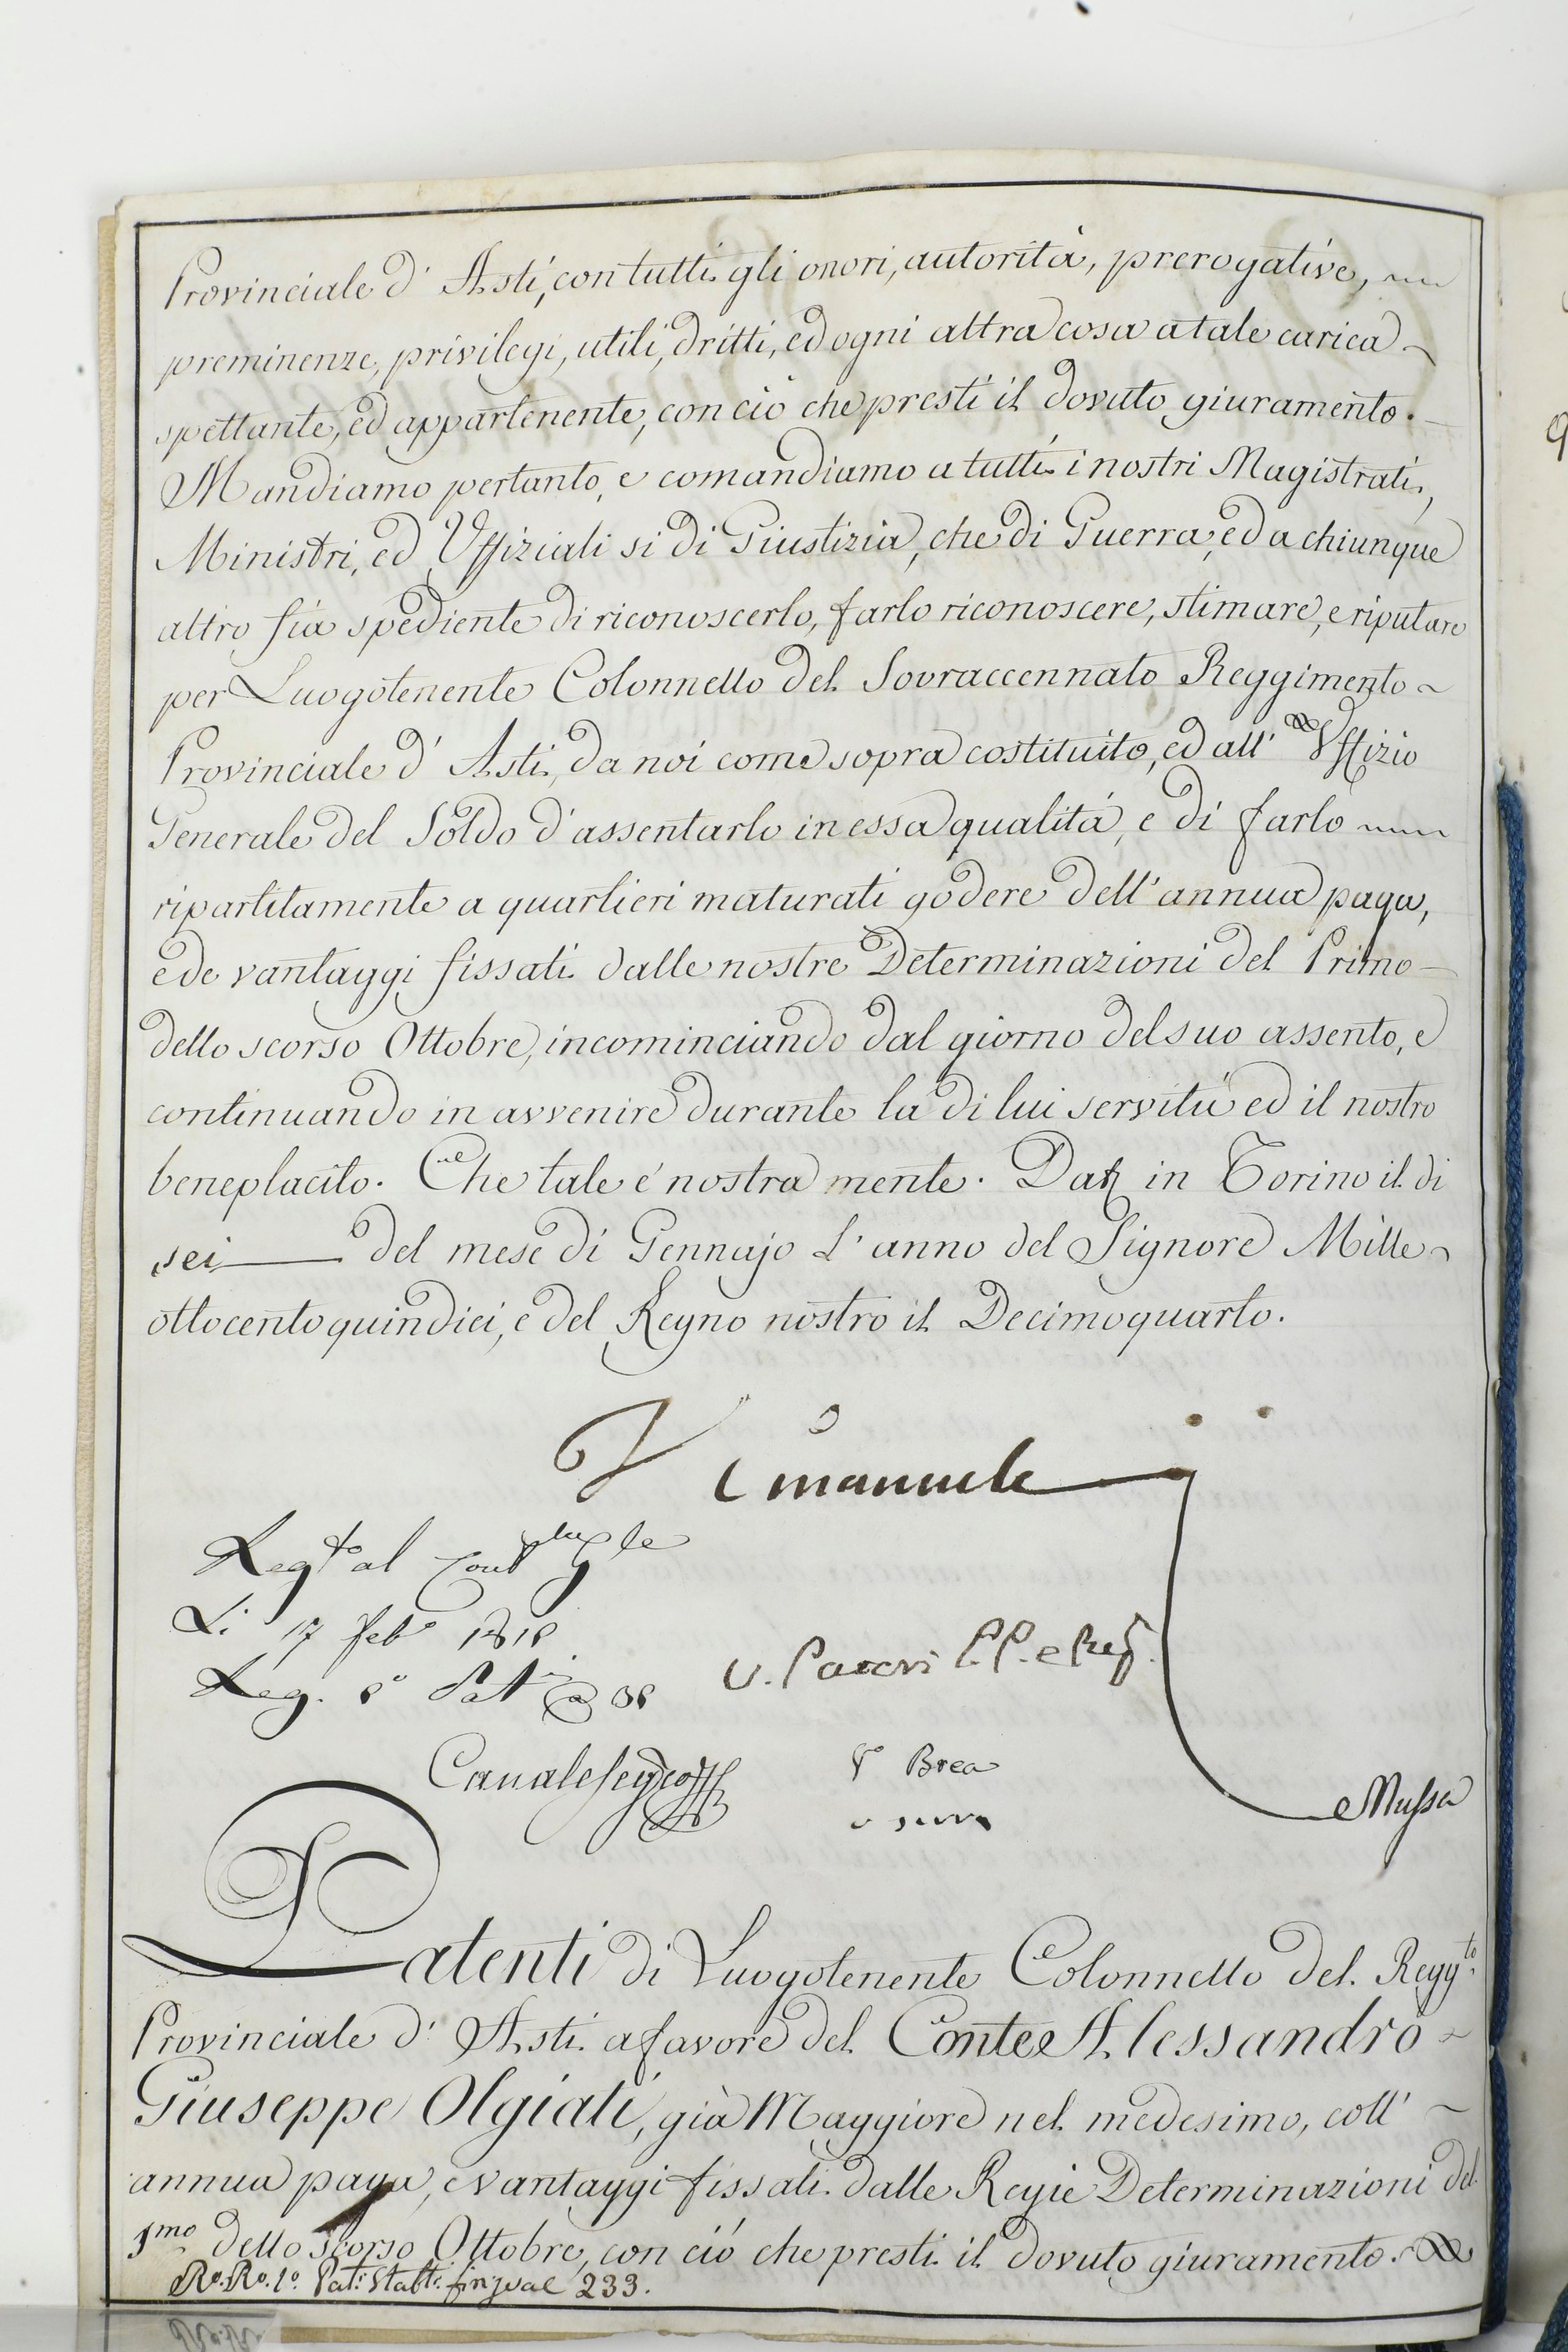 Provinciale d' Asti, con tutti gli onori, autorità, prerogative,
preminenze, privilegi, utili, dritti, ed ogni altra cosa a tale carica
spettante, ed appartenente, con ciò che presti il dovuto giuramento.
Mandiamo pertanto, e comandiamo a tutti i nostri Magistrati,
Ministri, ed Uffiziali si di Giustizia, che di Guerra, ed a chiunque
altro fia spediente di riconoscerlo, farlo riconoscere, stimare, e riputare
per Luogotenente Colonnello del Sovraccennato Reggimento
Provinciale d' Asti, da noi come sopra costituito, ed all' Uffizio
Generale del Soldo d'assentarlo in essa qualitá, e di farlo
ripartitamente a quartieri maturati godere dell'annua paga,
e de vantaggi fissati dalle nostre Determinazioni del Primo
dello scorso Ottobre, incominciando dal giorno del suo assento, e
continuando in avvenire durante la di lui servitù ed il nostro
beneplacito. Che tale é nostra mente. Dat in Torino il di
sei del mese di Gennajo L'anno del Signore Mille
ottocento quindici, e del Regno nostro il Decimoquarto.
V Emanuele
Regto al
Li 17 feb 1815
Reg.
Brea
Patenti di Luogotenente Colonnello del Reggto
Provinciale d' Asti a favore del Conte Alessandro
Giuseppe Olgiati, già Maggiore nel medesimo, coll'
annua paga, e vantaggi fissati dalle Regie Determinazioni del
1mo dello scorso Ottobre, con ció che presti il dovuto giuramento.
233.